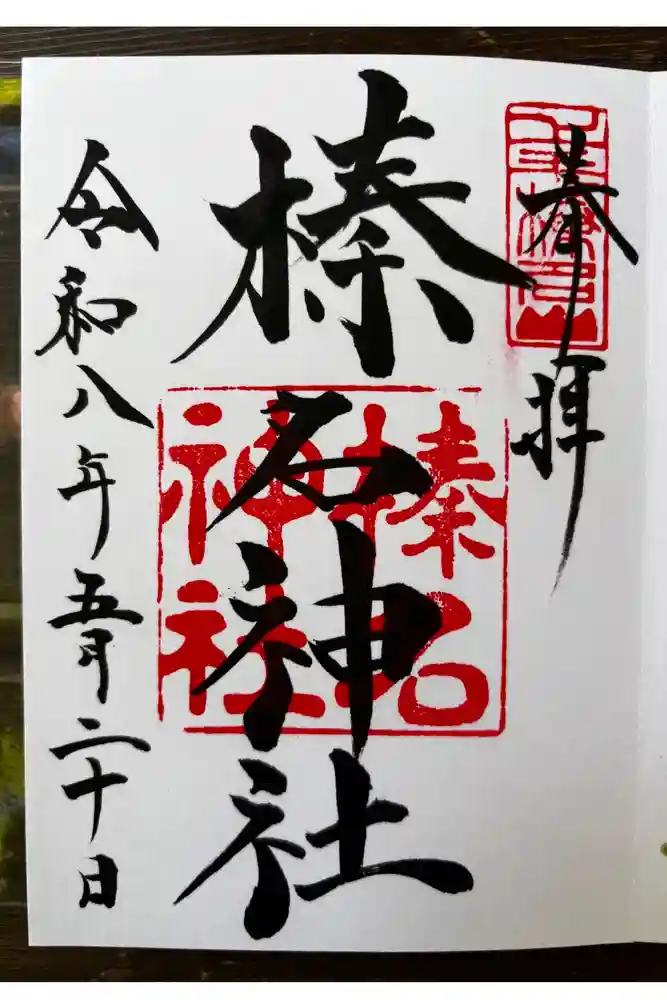 奉拝
上毛榛名山
榛名神社
榛名神社
令和八年五月二十日